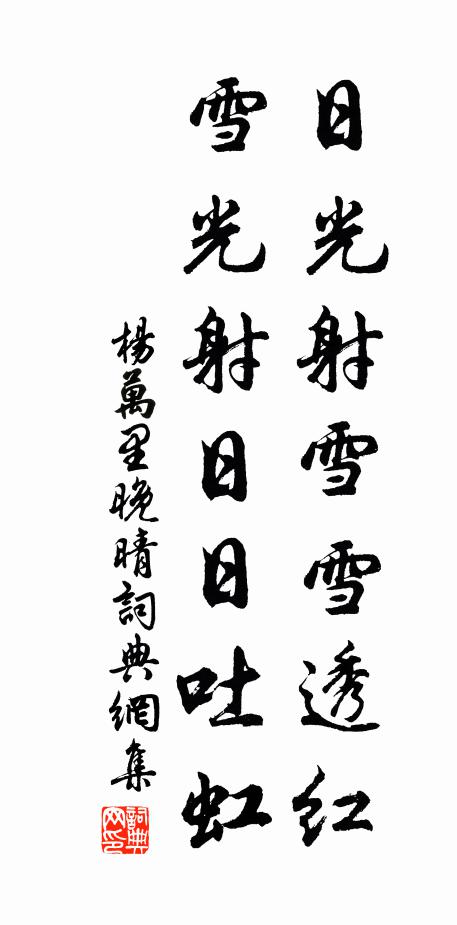 日光射雪雪透红
雪光射日日吐虹
楊萬里晚晴詞典網集
詞典网印